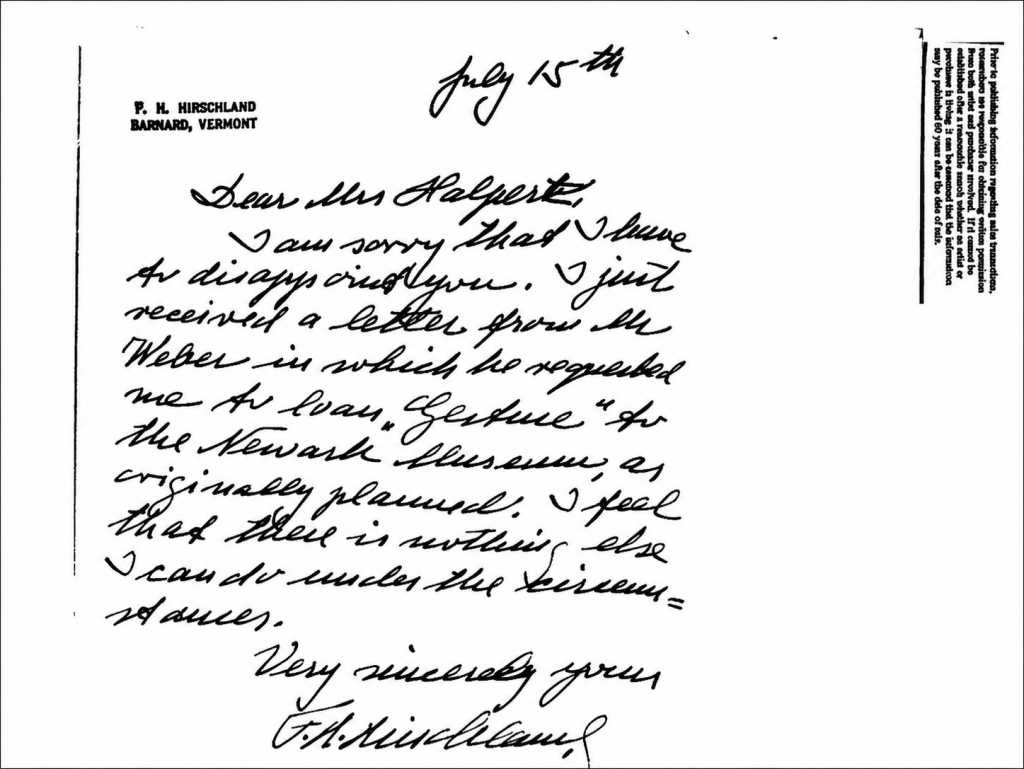 July 15th
F. H. HIRSCHLAND
BARNARD, VERMONT
Dear Mrs Halpert,
I am sorry that I have
to disappoint you. I just
received a letter from Mr
Weber in which he requested
me to loan „Gesture“ to
the Newark Museum, as
originally planned. I feel
that there is nothing else
I can do under the circum=
stances.
Very sincerely yours
F. H. Hirschland
Prior to publishing information regarding sales transactions,
researchers are responsible for obtaining written permission
from both artist and purchaser involved. If it cannot be
established after a reasonable search whether an artist or
purchaser is living, it can be assumed that the information
may be published 60 years after the date of sale.